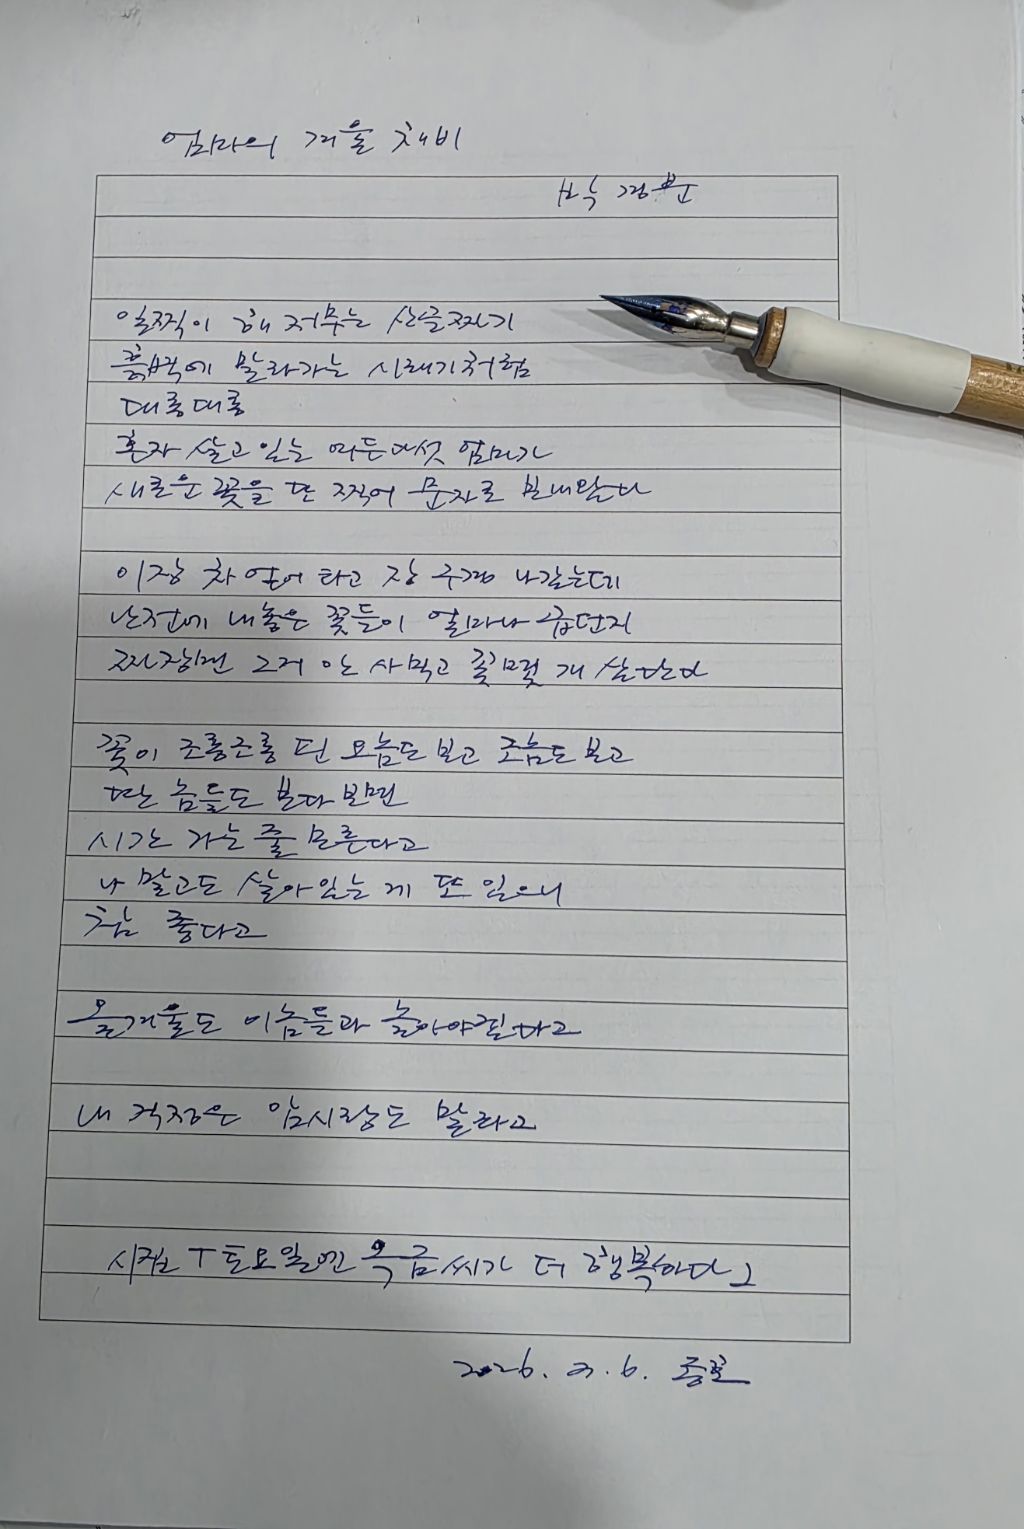 엄마의 겨울 채비
박경분
일찍이 해 저무는 산골짜기
흙벽에 말라가는 시래기처럼
대롱대롱
혼자 살고 있는 여든다섯 엄마가
새로운 꽃을 또 찍어 문자로 보내왔다
이장 차 얻어 타고 장 구경 나갔는데
난전에 내놓은 꽃들이 얼마나 곱던지
짜장면 그거 안 사먹고 꽃 몇 개 샀단다
꽃이 조롱조롱 핀 요놈도 보고 조놈도 보고
딴 놈들도 보다 보면
시간 가는 줄 모른다고
나 말고도 살아있는 게 또 있으니
참 좋다고
올겨울도 이놈들과 놀아야겠다고
내 걱정은 암시랑도 말라고
시집 『토요일엔 옥금씨가 더 행복하다』
2026. 3. 6.